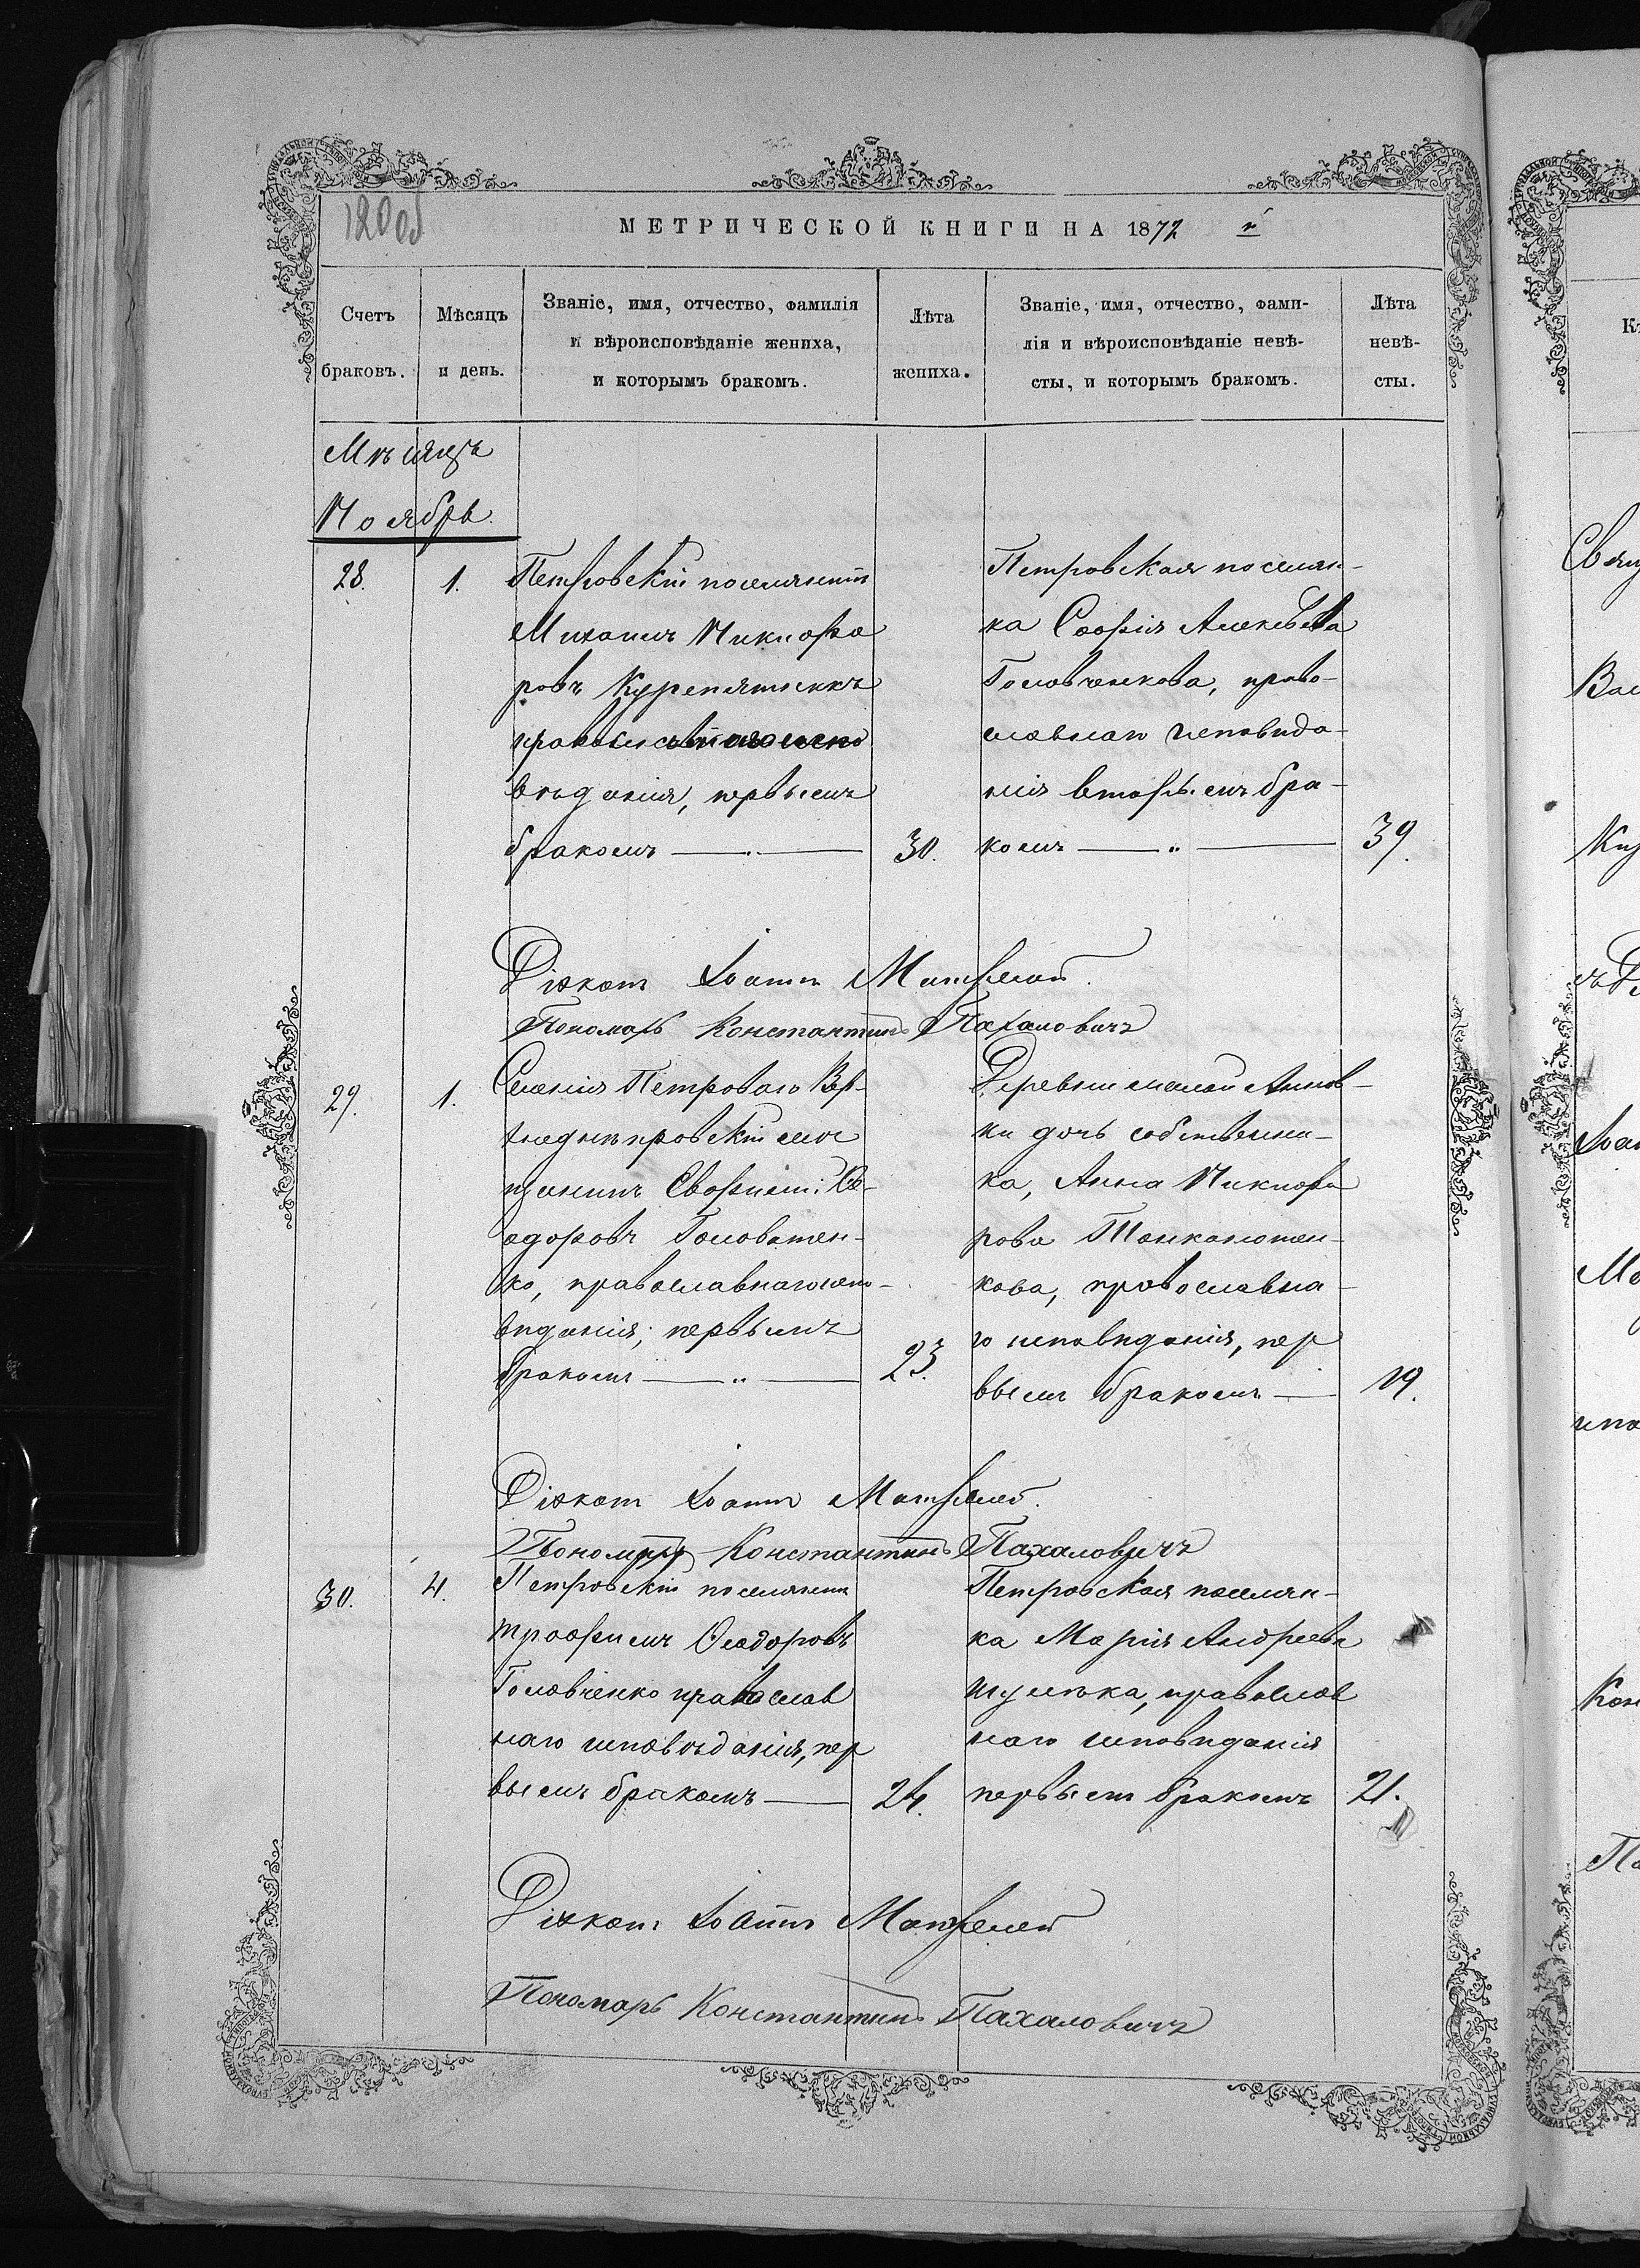 МЕТРИЧЕСКОЙ КНИГИ НА 1872 г.
Счетъ браковъ.
Мѣсяцъ и день.
Званіе, имя, отчество, фамилія
и вѣроисповѣданіе жениха,
и которымъ бракомъ.
Лѣта жениха.
Званіе, имя, отчество, фами-
лія и вѣроисповѣданіе невѣ-
сты, и которымъ бракомъ.
Лѣта невѣ-
сты.
Мѣсяцъ
Ноябрь.
28. 1.
Петровскій поселянинъ
Михаилъ Никифо
ровъ
православнаго испо
вѣданія, первымъ
бракомъ — 30.
Петровская поселян-
ка Софія Алексѣева
Головченкова, право-
славнаго исповѣда-
нія вторымъ бра-
комъ — „ — 39.
Діаконъ Іоаннъ
Пономарь Константинъ Пахаловичъ
29. 1.
Селенія Петроваго Вер-
хнеднѣпровскій мѣ
щанинъ Ѳе-
одоровъ Головатен-
ко, православнаго испо-
вѣданія, первымъ
бракомъ — „ — 23.
Деревни малой Аннов-
ки дочь собственни-
ка, Анна Никифо
рова
кова, православна-
го исповѣданія, пер
вымъ бракомъ — 19.
Діаконъ Іоаннъ
Пономарь Константинъ Пахаловичъ
30. 4.
Петровскій поселянинъ
Трофимъ Ѳеодоровъ
Головченко православ
наго исповѣданія, пер
вымъ бракомъ — 24.
Петровская поселян-
ка Марія Андреева
православ
наго исповѣданія
первымъ бракомъ 21.
Діаконъ Іоаннъ
Пономарь Константинъ Пахаловичъ